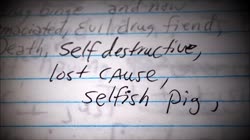 binge and now
Evil drug fiend,
Death, Self destructive,
lost cause,
selfish pig,